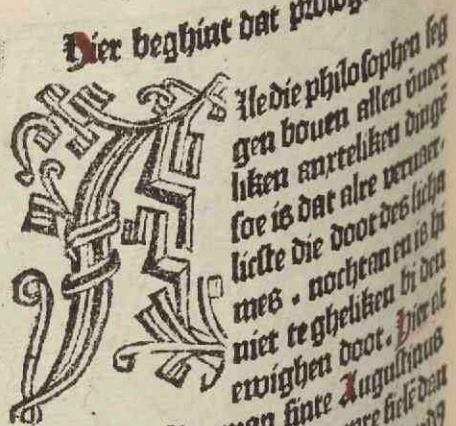 Hier beghint dat prologh
Alle die philosophen seg
gen bouen allen ouere
liken anxteliken dinge
soe is dat alre veruaer,
licste die doot des licha
mes . nochtan en is hi
niet te gheliken bi den
ewighen doot. Hier
sinte Augustinus
siele dan